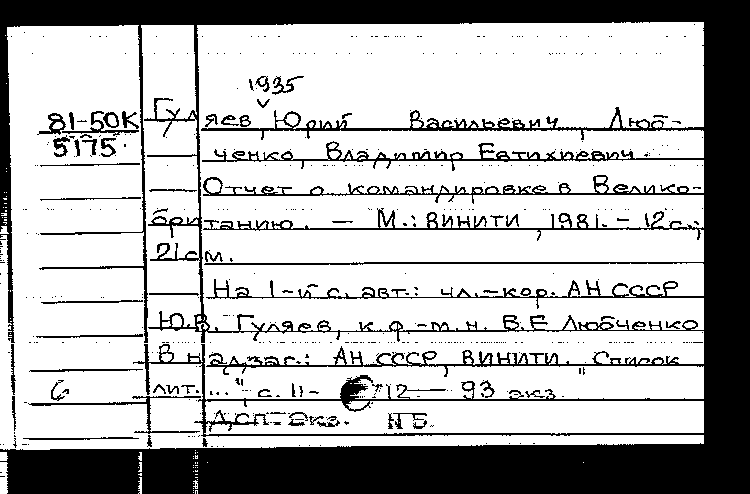 1935
81-50К Гуляев, Юрий Васильевич, Люб-
5175 ченко, Владимир Евтихиевич.
Отчет о командировке в Велико-
британию. — М.: ВИНИТИ, 1981. – 12 с.;
21 см.
На 1-й с. авт.: чл.-кор. АН СССР
Ю.В. Гуляев, к.ф.-м.н. В.Е Любченко
В надзаг.: АН СССР, ВИНИТИ. "Список
6 лит. ...", с. 11- 12 — 93 экз.
ДСП. Экз. N 5.